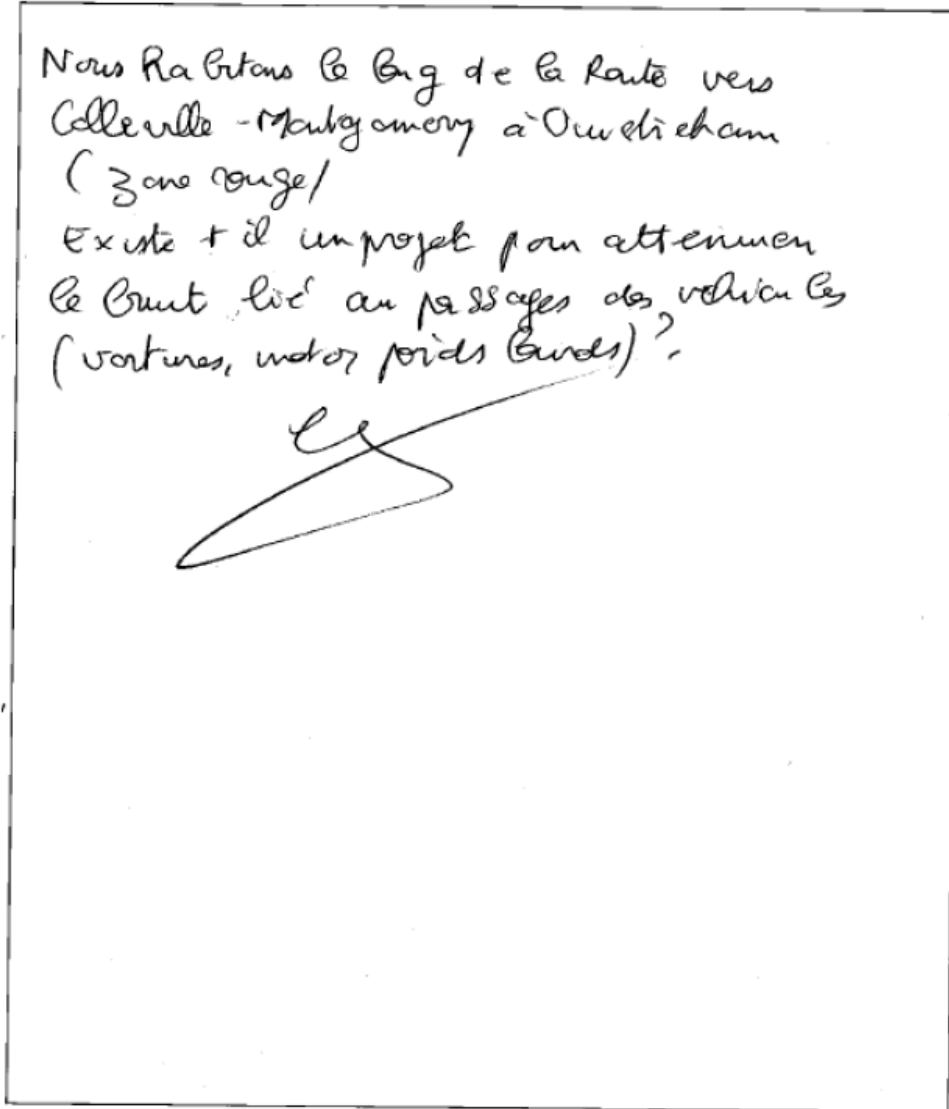 Nous habitons le long de la Route vers
Colleville - Montgomery à Ouistreham
(zone rouge)
Existe t il un projet pour attenuuer
le bruit lié au passages des véhicules
(voitures, motos, poids lourds) ?